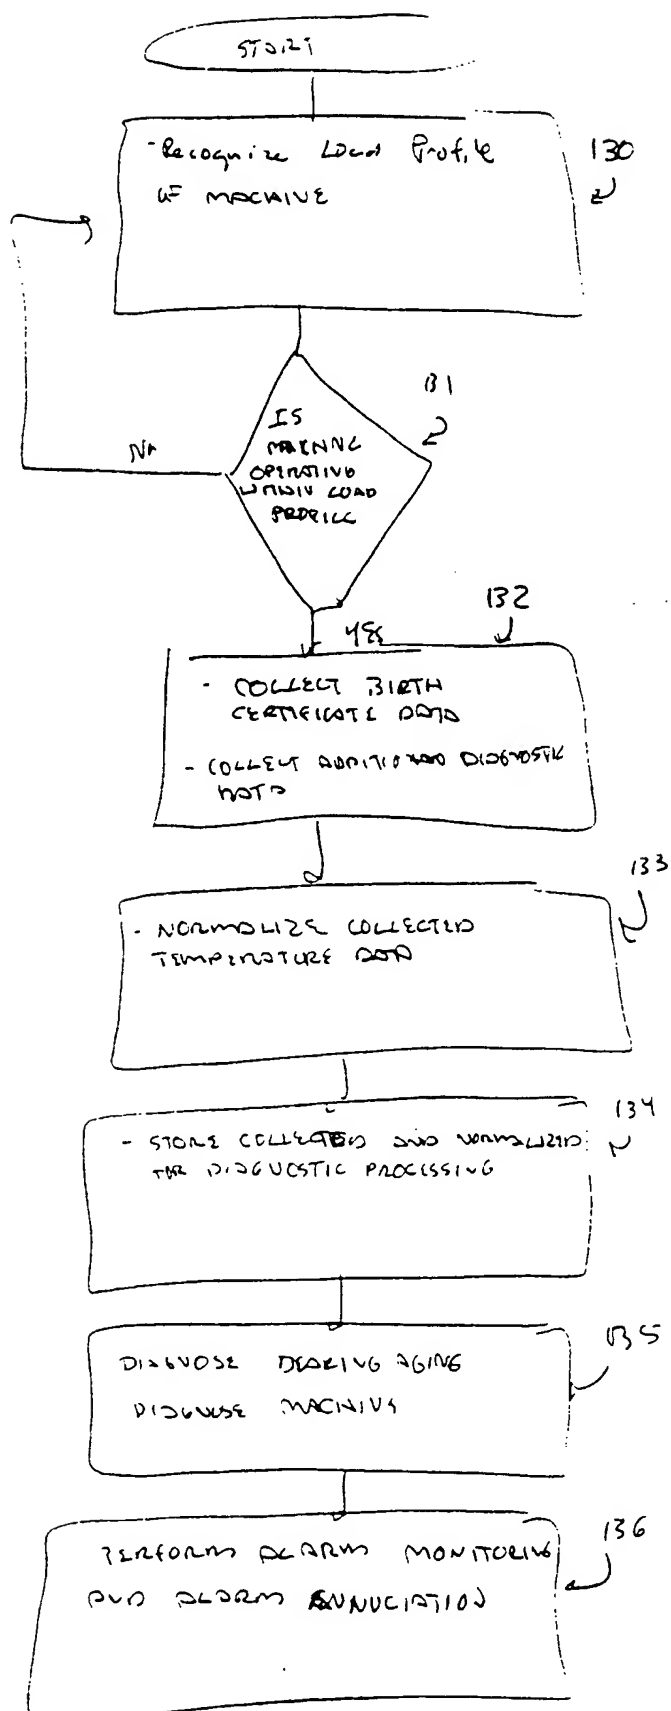 START
- Recognize Load Profile
OF MACHINE
130
131
IS
MACHINE
OPERATING
WITHIN LOAD
PROFILE
No
YES
132
- COLLECT BIRTH
CERTIFICATE DATA
- COLLECT ADDITIONAL DIAGNOSTIC
DATA
133
- NORMALIZE COLLECTED
TEMPERATURE DATA
134
- STORE COLLECTED AND NORMALIZED
FOR DIAGNOSTIC PROCESSING
135
DIAGNOSE BEARING AGING
DIAGNOSE MACHINE
136
PERFORM ALARM MONITORING
AND ALARM ANNUCIATION